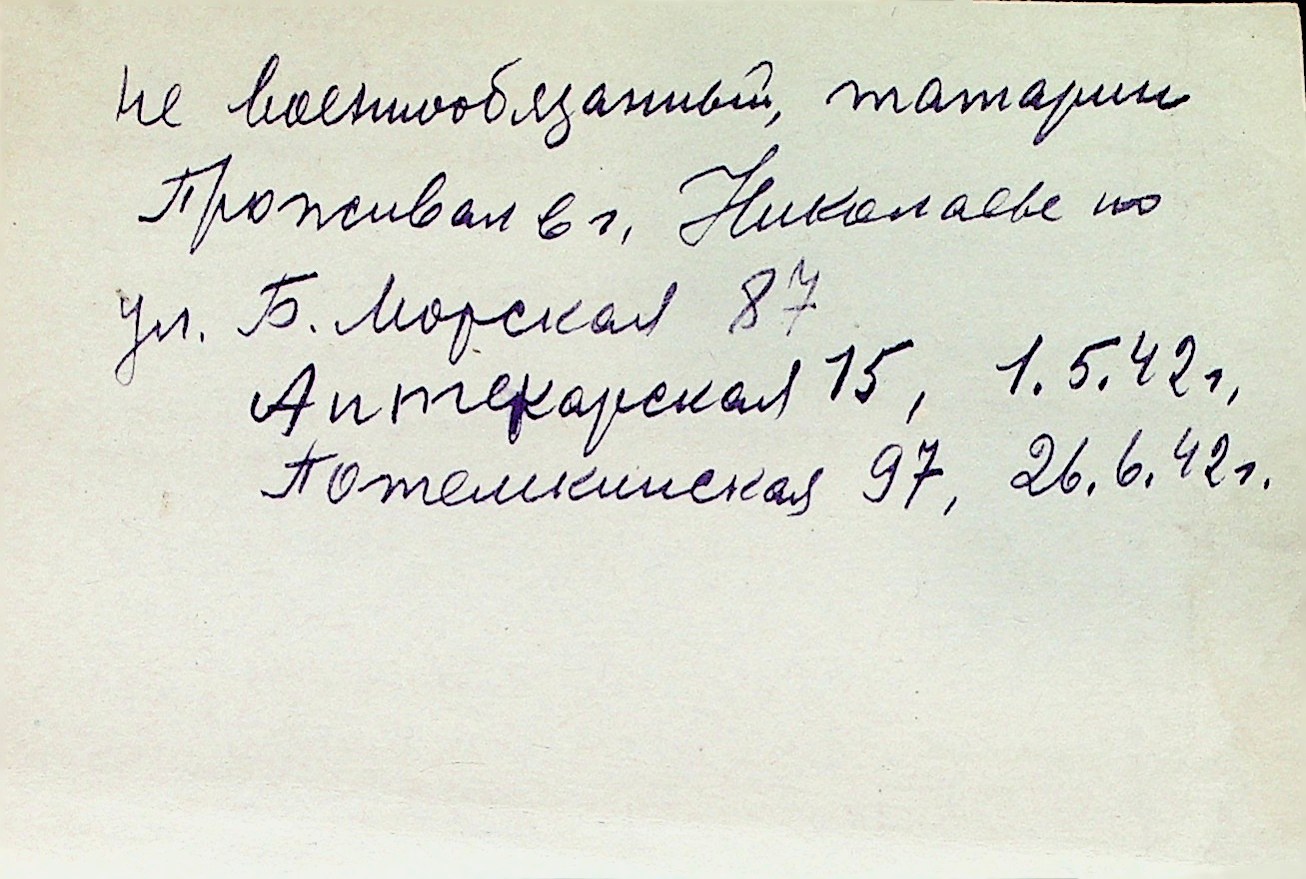 не военнообязанный, татарин
Проживал в г. Николаеве по
ул. Б. Морская 87
Аптекарская 15, 1.5.42г,
Потемкинская 97, 26.6.42г.